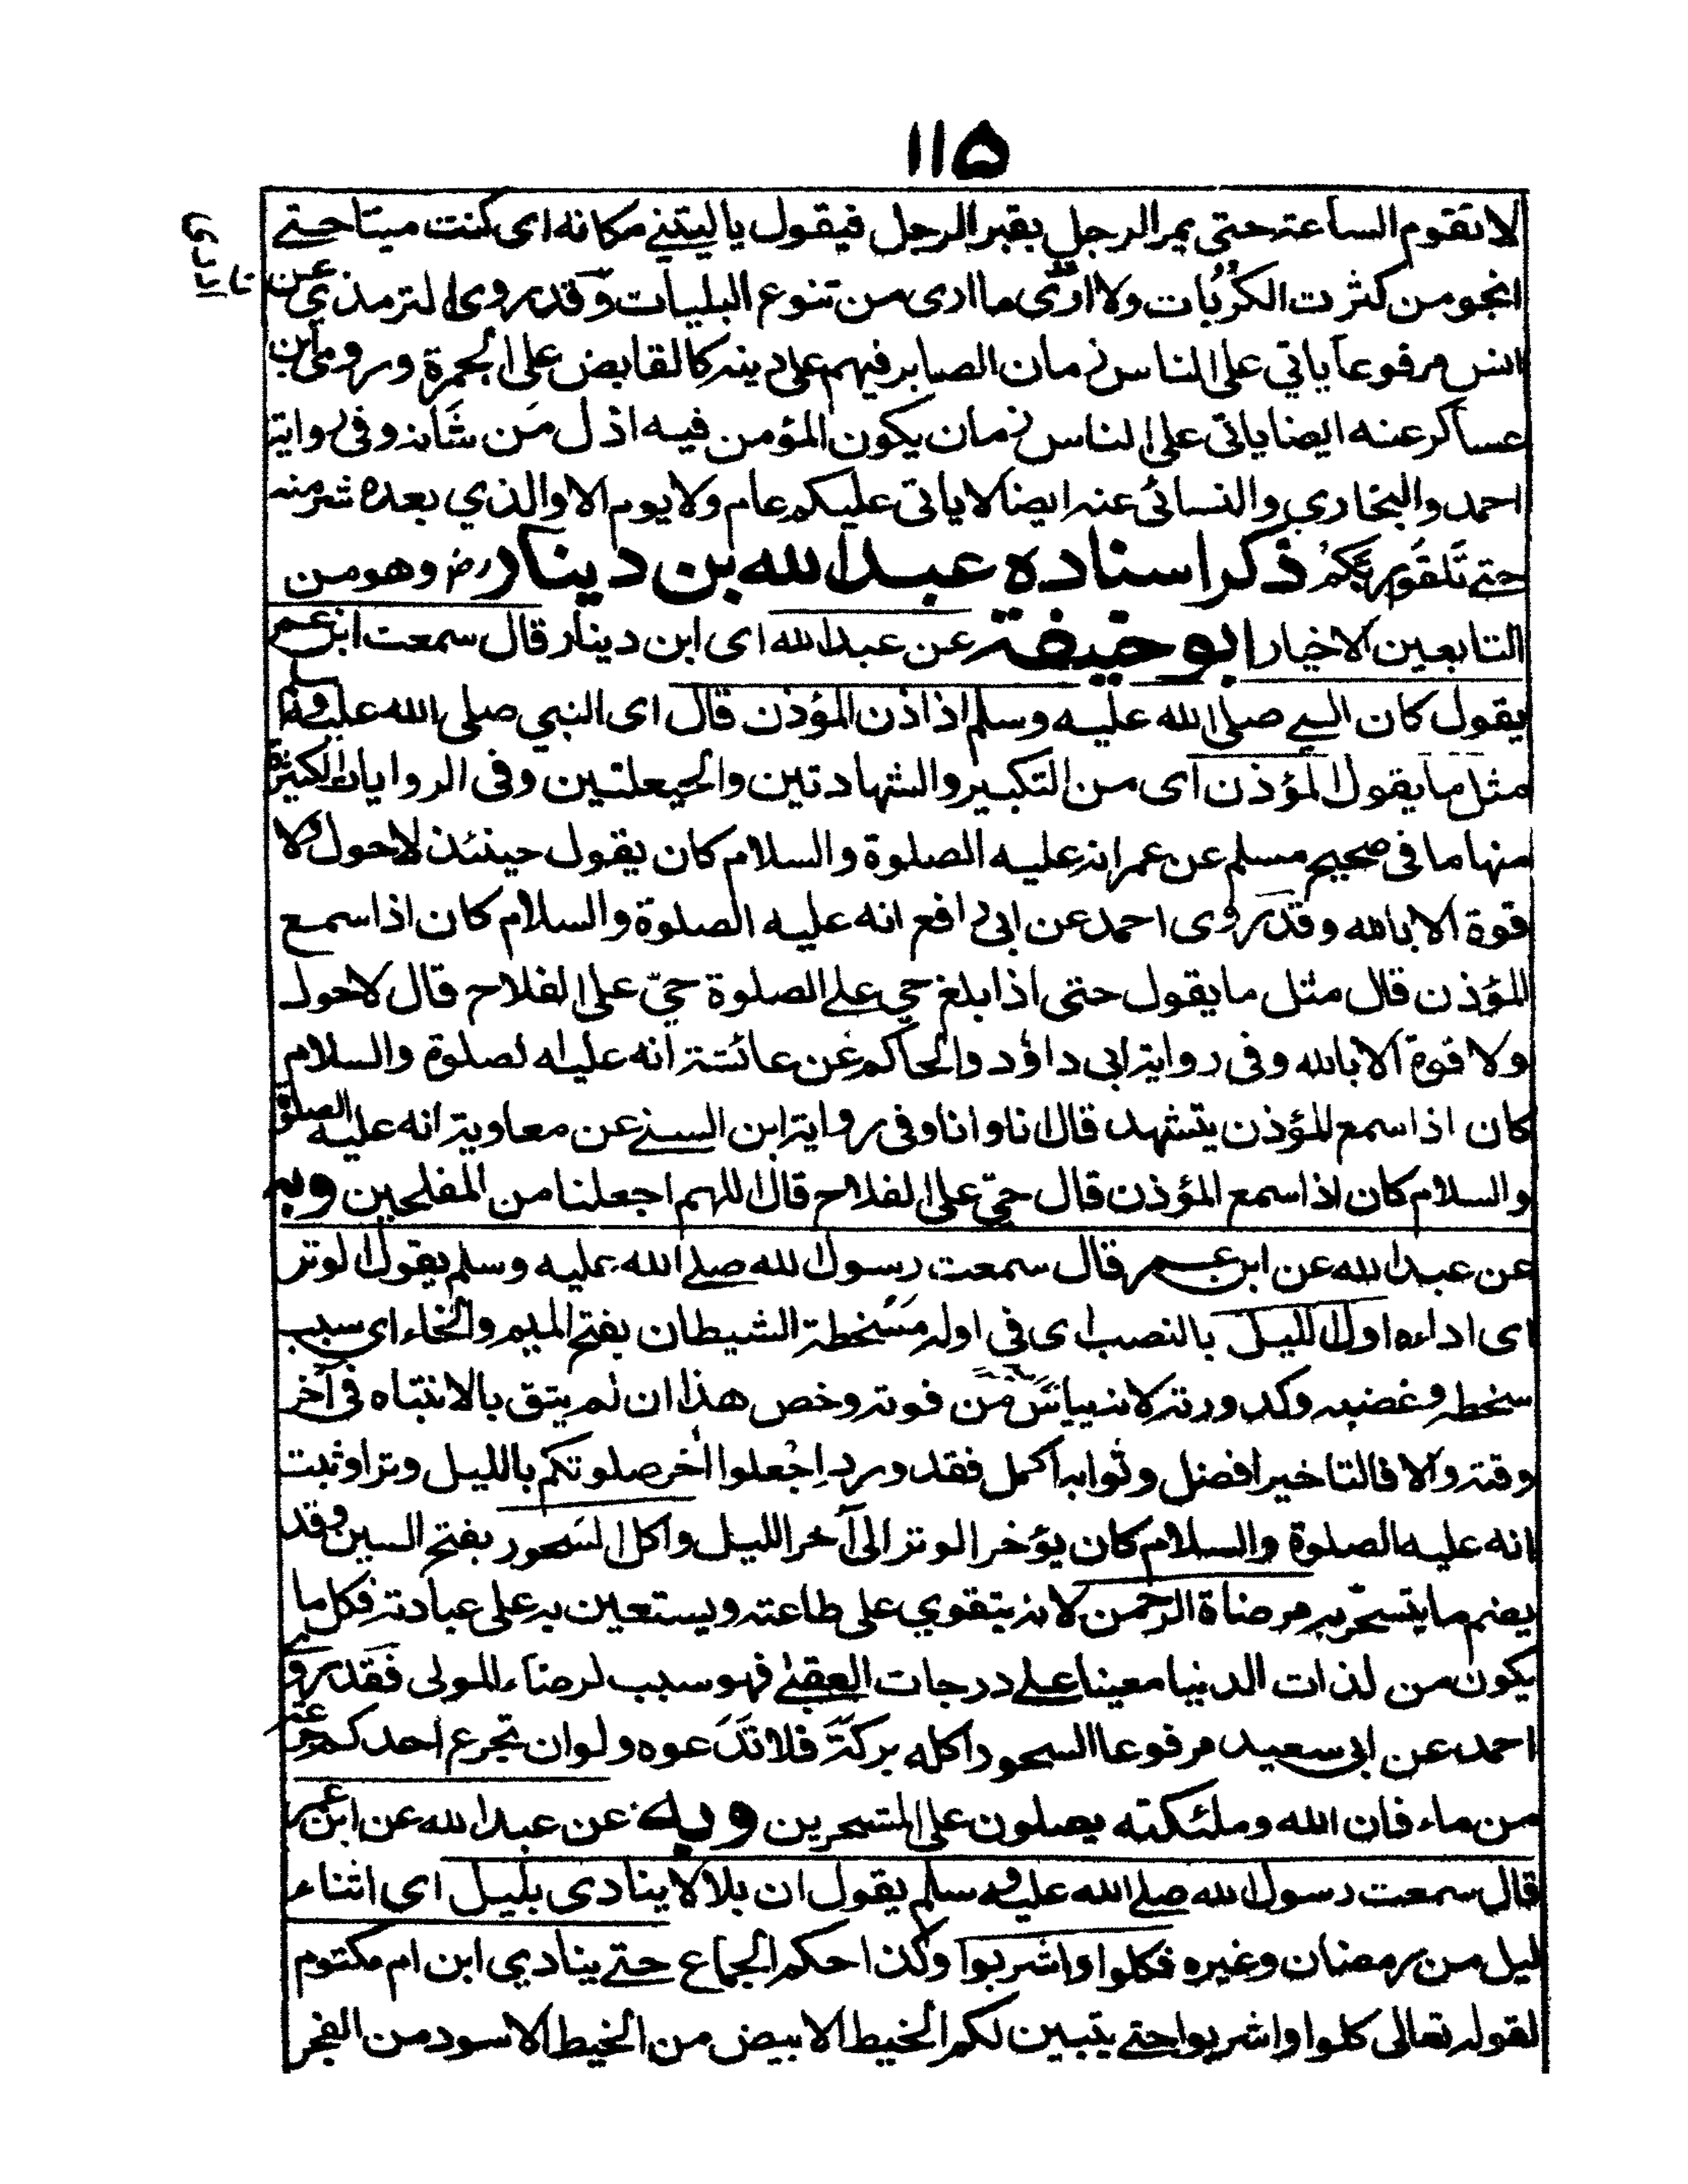 ۱۱۵
لا تقوم الساعة حتى يمر الرجل بقبر الرجل فيقول يا ليتني مكانه اى كنت ميتا حتے
انجو من كثرت الكرُبات ولا ارٰى ما ارى من تنوع البليات وقد روى الترمذي عن
انس مرفوعا ياتي على الناس زمان الصابر فيهم على دينه كالقابض على الجمرة وروى ابن
عساكر عنه ايضا ياتى على الناس زمان يكون المؤمن فيه اذل من شَانه وفى رواية
احمد والبخاري والنسائى عنه ايضا لا ياتى عليكم عام ولا يوم الا والذي بعده شر منه
حتے تَلقَو ربّكم ذكر اسناده عبد الله بن دينار رض وهو من
التابعين الاخيار ابو حنيفة عن عبد الله اى ابن دينار قال سمعت ابن عمر
يقول كان النبے صلى الله عليه وسلم اذا اذن المؤذن قال اى النبي صلى الله عليه وسلم
مثل ما يقول المؤذن اى من التكبير والشهادتين والحيعلتين وفى الروايات الكثيرة
منها ما فى صحيح مسلم عن عمر انه عليه الصلوة والسلام كان يقول حينئذ لاحول ولا
قوة الا بالله وقد روى احمد عن ابى رافع انه عليه الصلوة والسلام كان اذا سمع
المؤذن قال مثل ما يقول حتى اذا بلغ حي علے الصلوة حيّ على الفلاح قال لاحول
ولا قوة الا بالله وفى رواية ابى داؤد والحاكم عن عائشة انه عليه لصلوة والسلام
كان اذا سمع المؤذن يتشهد قال انا وانا وفى رواية ابن السنے عن معاوية انه عليه الصلوة
والسلام كان اذا سمع المؤذن قال حيّ على الفلاح قال اللهم اجعلنا من المفلحين وبه
عن عبد الله عن ابن عمر قال سمعت رسول الله صلے الله عليه وسلم يقول الوتر
اى اداءه اول الليل بالنصب اى فى اوله مَسْخطة الشيطان بفتح الميم والخاء اى سبب
سخطه وغضبه وكدورته لانه يياس من فوته وخص هذا ان لم يثق بالانتباه فى آخر
وقته والا فالتاخير افضل وثوابه اكمل فقد ورد اِجْعلوا اٰخر صلوتكم بالليل وترا وثبت
انه عليه الصلوة والسلام كان يؤخر الوتر الى آخر الليل واكل السَحور بفتح السين وقد
يضم ما يتسحّر به مرضاة الرحمن لانه يتقوي على طاعته ويستعين به على عبادته فكل ما
يكون من لذات الدنيا معينا علے درجات العقبٰے فهو سبب لرضاء المولى فقد روى
احمد عن ابى سعيد مرفوعا السحور اكله بركة فلا تَدَعوه ولو ان تجرع احدكم جرعة
من ماء فان الله وملئكته يصلون على المتسحرين وبه عن عبد الله عن ابن عمر
قال سمعت رسول الله صلے الله عليه وسلم يقول ان بلالا ينادى بليل اى اثناء
ليل من رمضان وغيره فكلوا واشربوا وكذا حكم الجماع حتے ينادي ابن ام مكتوم
لقوله تعالى كلوا واشربوا حتے يتبين لكم الخيط الابيض من الخيط الاسود من الفجر